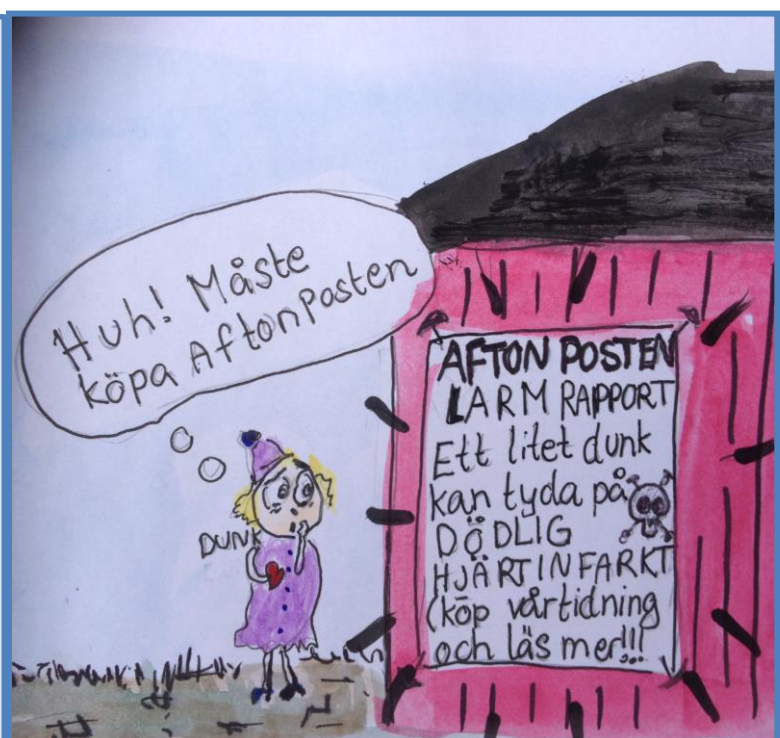 Huh! Måste
köpa AftonPosten
AFTON POSTEN
LARM RAPPORT
Ett litet dunk
kan tyda på
DÖDLIG
HJÄRTINFARKT
(köp vårtidning
och läs mer!!!
DUNK